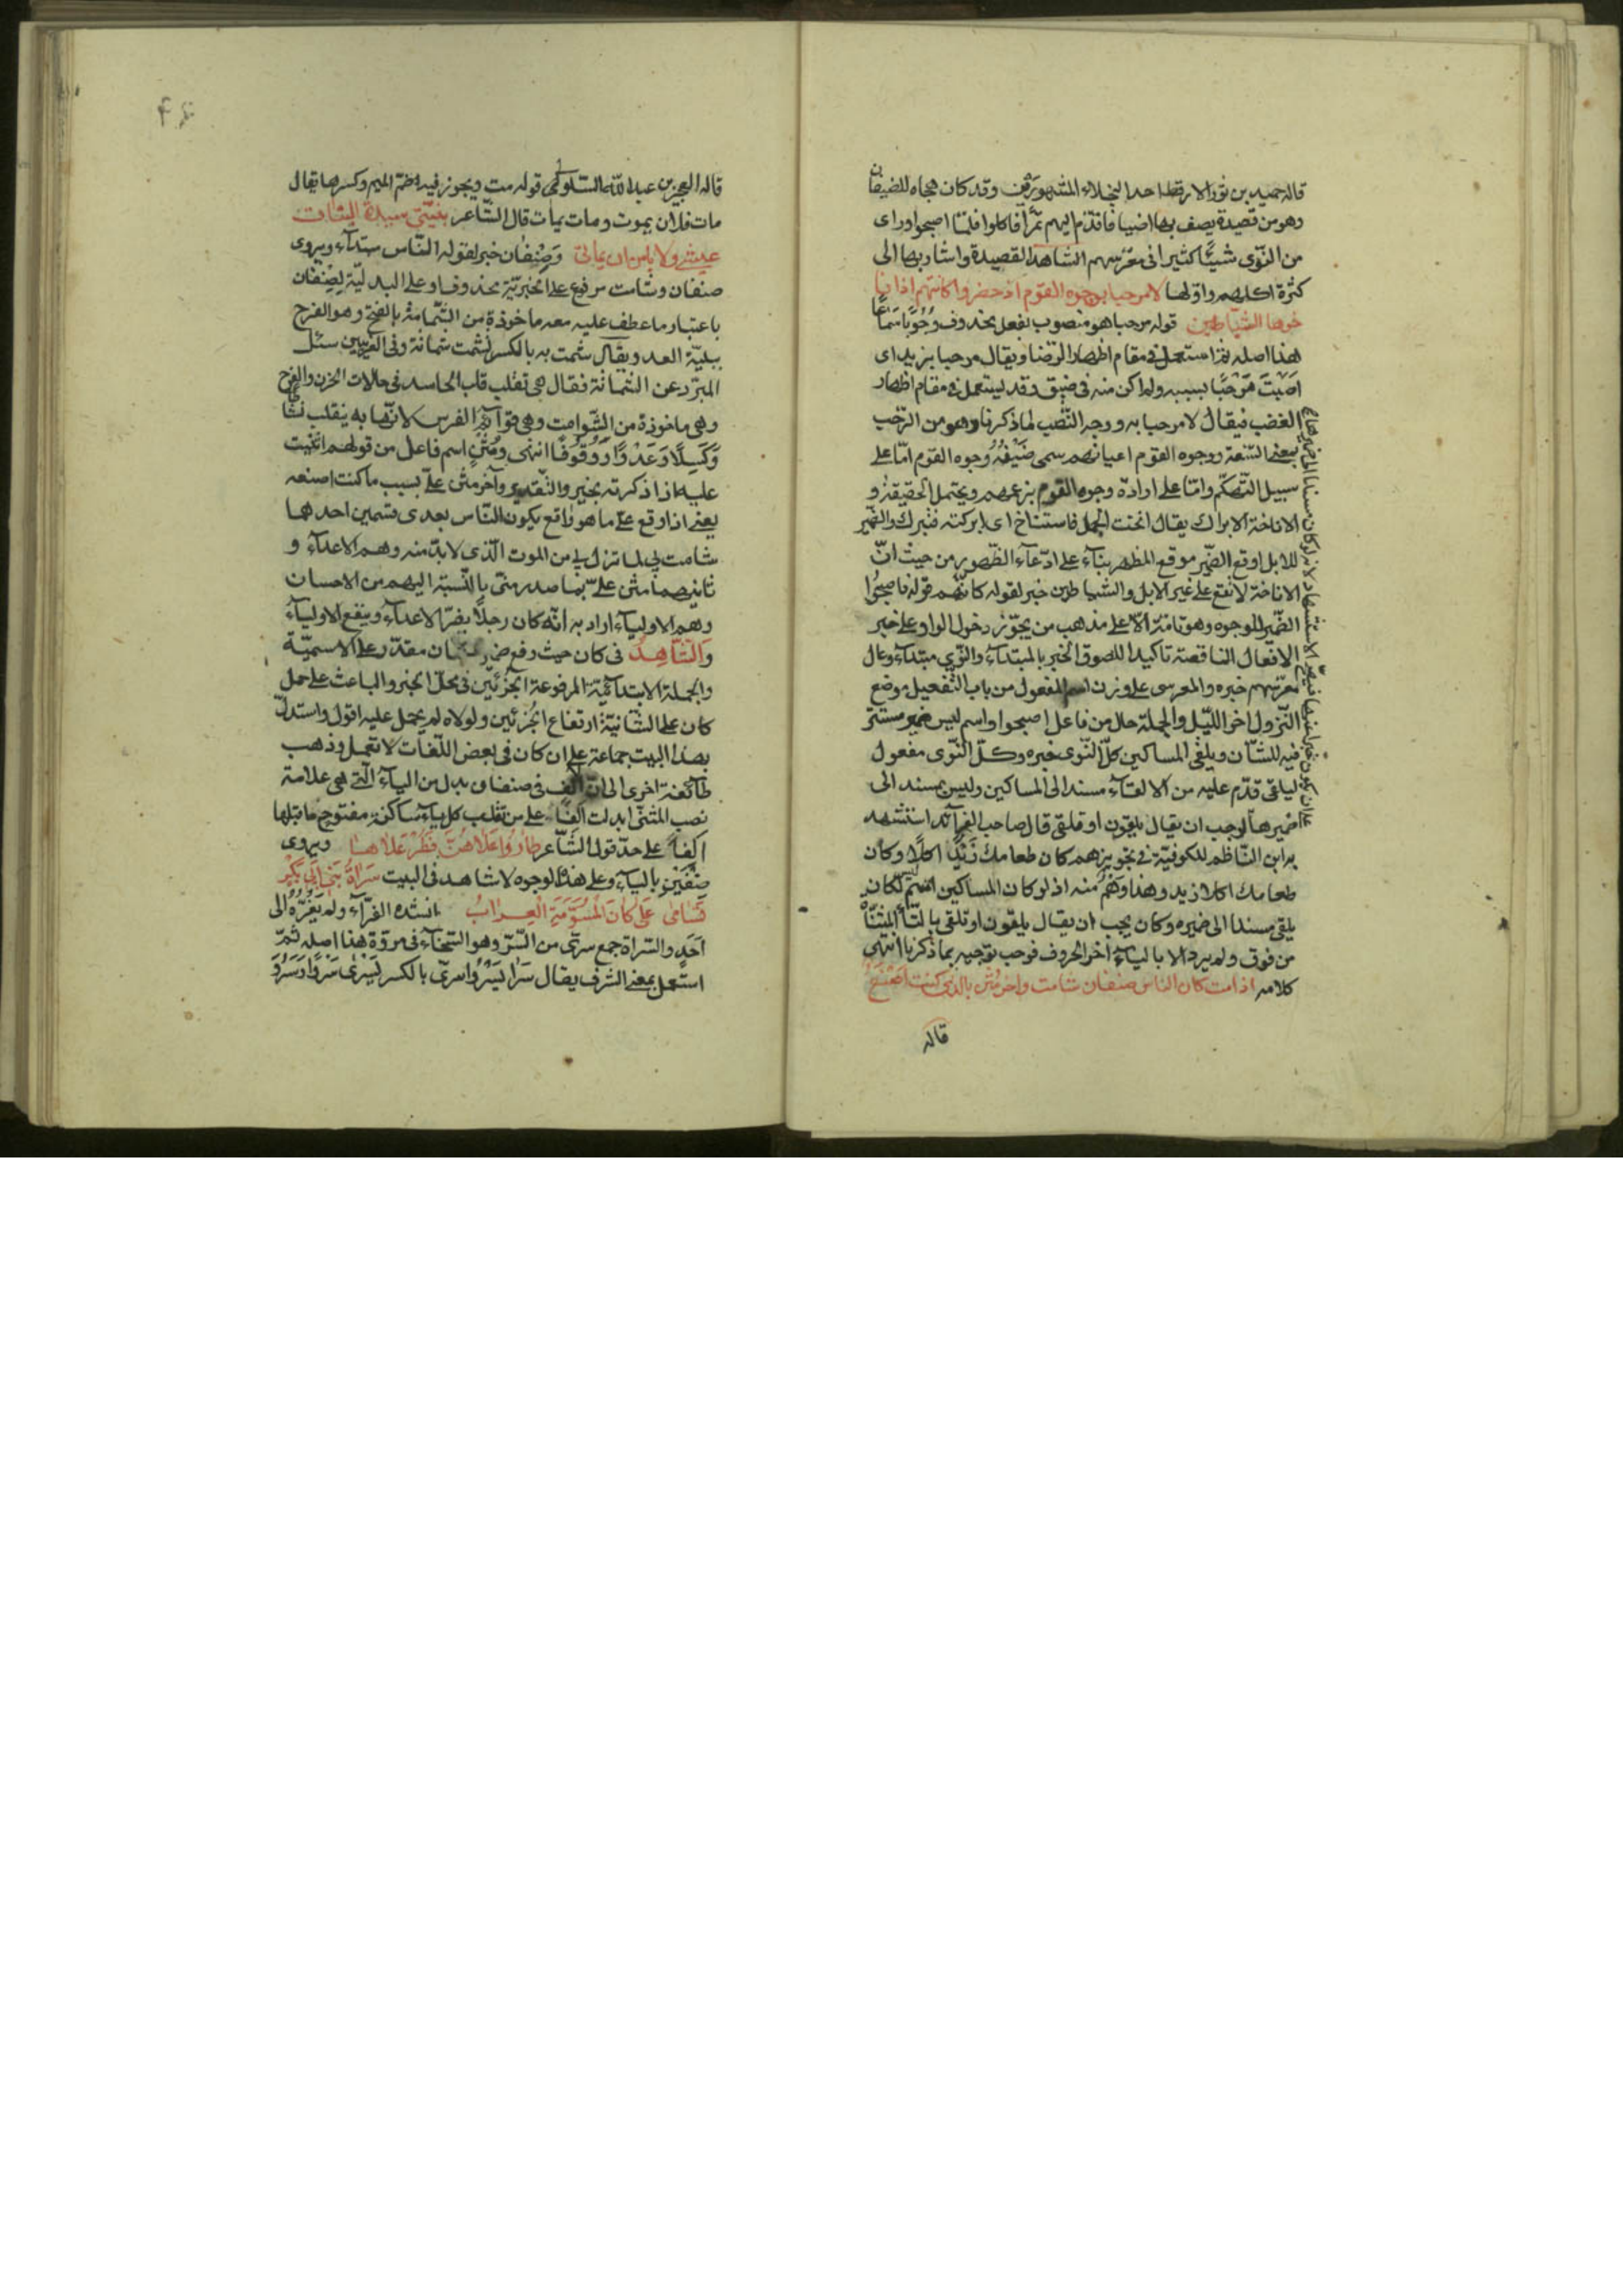 قاله حميد بن ثور الارقط احد البخلاء المشهورين وقد كان هجاه للضيفان
وهو من قصيدة يصف بها اضيافا قدّم اليهم تمرا فاكلوا فلمّا اصبحوا وراى
من النّوى شيئًا كثيرا فى معرّسهم الشاهد القصيدة واشار بها الى
كثرة اكلهم واوّلها لا مرحبا بوجوه القوم اذ حضروا كانّهم اذ انا
خوها الشّياطين قوله مرحبا هو منصوب بفعل محذوف وجُوبًا سَمَاعًا
هذا اصله ثمّ استعمل فى مقام اظهار الرّضا ويقال مرحبا بزيد اى
اصَبْتَ مَرْحَبًا بسببه ولم اكن منه فى ضيق وقد يستعمل فى مقام اظهار
الغضب فيقال لا مرحبا به ووجه النّصب لما ذكرنا وهو من الرّحب
بمعنى السّعة ووجوه القوم اعيانهم سمى ضَيْفُهُ وجوه القوم امّا على
سبيل التّهكّم وامّا على ارادة وجوه القوم بزعمهم ويحتمل الحقيقة و
الاناخة الابراك يقال انخت الجمل فاستناخ اى ابركته فبرك والضّمير
للابل اوقع الضّمير موقع المظهر بناء على ادّعاء الظّهور من حيث انّ
الاناخة لا تقع على غير الابل والشياطين خبر لقوله كانّهم قوله فاصبحُوا
الضّمير للوجوه وهو تامّة الّا على مذهب من يجوّز دخول الواو على خبر
الافعال الناقصة تاكيدا للصوق الخبر بالمبتداء والنّوى مبتداء وعال
معرّسهم خبره والمعرس على وزن اسم المفعول من باب التّفعيل موضع
النّزول اخر اللّيل والجملة حال من فاعل اصبحوا واسم ليس ضمير مستتر
فيه للشّان ويلقى المساكين كلّ النّوى خبره وكلّ النّوى مفعول
ليلقى قدّم عليه من الالقاء مسند الى المساكين وليس بمسند الى
ضميرها لوجب ان يقال يلقون او تلقى قال صاحب الفرآئد استشهد
به ابن النّاظم للكوفيّة فى تجويزهم كان طعامك زَيْدٌ اكلًا وكان
طعامك اكلا زيد وهذا وَهَمٌ منه اذ لو كان المساكين اسم ليس لكان
يلقى مسندا الى ضميره وكان يجب ان يقال يلقون او تلقى بالتّاء المثنّاة
من فوق ولم يرد الا بالياء آخر الحروف فوجب توجيهه بما ذكرنا انتهى
كلامه اذا مت كان الناس صنفان شامت واخر مُثْنٍ بالذى كنت اَصْنَعُ
قاله
قاله العجيز بن عبد اللّه السّلولى قوله مت ويجوز فيه ضمّ الميم وكسرها يقال
مات فلان يموت ومات يمات قال الشّاعر بنيّتى سيدة البنات
عيشى ولا يامن ان يماتى وَصِنْفان خبر لقوله النّاس مبتداء ويروى
صنفان وشامت مرفوع على الخبريّة بمحذوف او على البدليّة لصِنْفان
باعتبار ما عطف عليه معه ماخوذة من الشّماتة بالفتح وهو الفرح
ببليّة العدو ويقال شمت به بالكسر يشمت شماتة وفى الغريبين سئل
المبرّد عن الشّماتة فقال هى تقلب قلب الحاسد فى حالات الحزن والفرح
وهى ماخوذة من الشّوامت وهى قوآئم الفرس لانّها به ينقلب نشاطا
وَكَسِلًا وَعَدْوًا وَوُقُوفًا انتهى وَمُثْنٍ اسم فاعل من قولهم اثنيت
عليه اذا ذكرته بخير والتّقدير وآخر مثن علىّ بسبب ما كنت اصنعه
يعنى اذا وقع علىّ ما هو واقع يكون النّاس بعدى قسمين احدهما
شامت بى لما نزل بى من الموت الّذى لا بدّ منه وهم الاعداء و
ثانيهما مثن علىّ بما صدر منّى بالنّسبة اليهم من الاحسان
وهم الاولياء اراد به انّه كان رجلًا يضرّ الاعداء وينفع الاولياء
وَالشّاهِدُ فى كان حيث رفع مقدّر على الاسميّة
والجملة الابتدآئيّة المرفوعة الجزئين فى محلّ الخبر والباعث على حمل
كان على الشّانيّة ارتفاع الجزئين ولولاه لم يحمل عليه اقول واستدلّ
بهذا البيت جماعة على ان كان فى بعض اللّغات لا تعمل وذهب
طآئفة اخرى الى انّ الالف فى صنفان بدل من الياء الّتى هى علامة
نصب المثنّى ابدلت اَلِفًا على من يقلب كل ياء ساكنة مفتوح ما قبلها
اَلِفًا على حدّ قول الشّاعر طارُوا عَلَاهُنّ فَطُرْ عَلَاها ويروى
صِنْفَيْنِ بالياء وعلى هذه الوجوه لا شاهد فى البيت سَرَاةُ بَنِى اَبِى بَكْرٍ
تَسَامى عَلى كانَ المُسَوَّمَةِ الْعِرَابُ انشده الفرّاء ولم يَعْزُهُ الى
اَحَدٍ والسّراة جمع سرىّ من السّرو وهو السّخاء فى مروّة هذا اصله ثمّ
استعمل بمعنى الشرف يقال سَرَا يَسْرُوا وسرى بالكسر يَسْرى سَرْوًا وَسَرُوَ